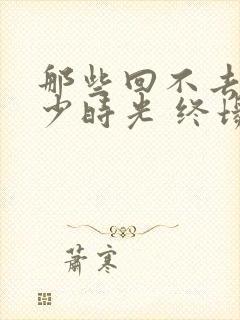 那些回不去
少時光 终场
萧寒